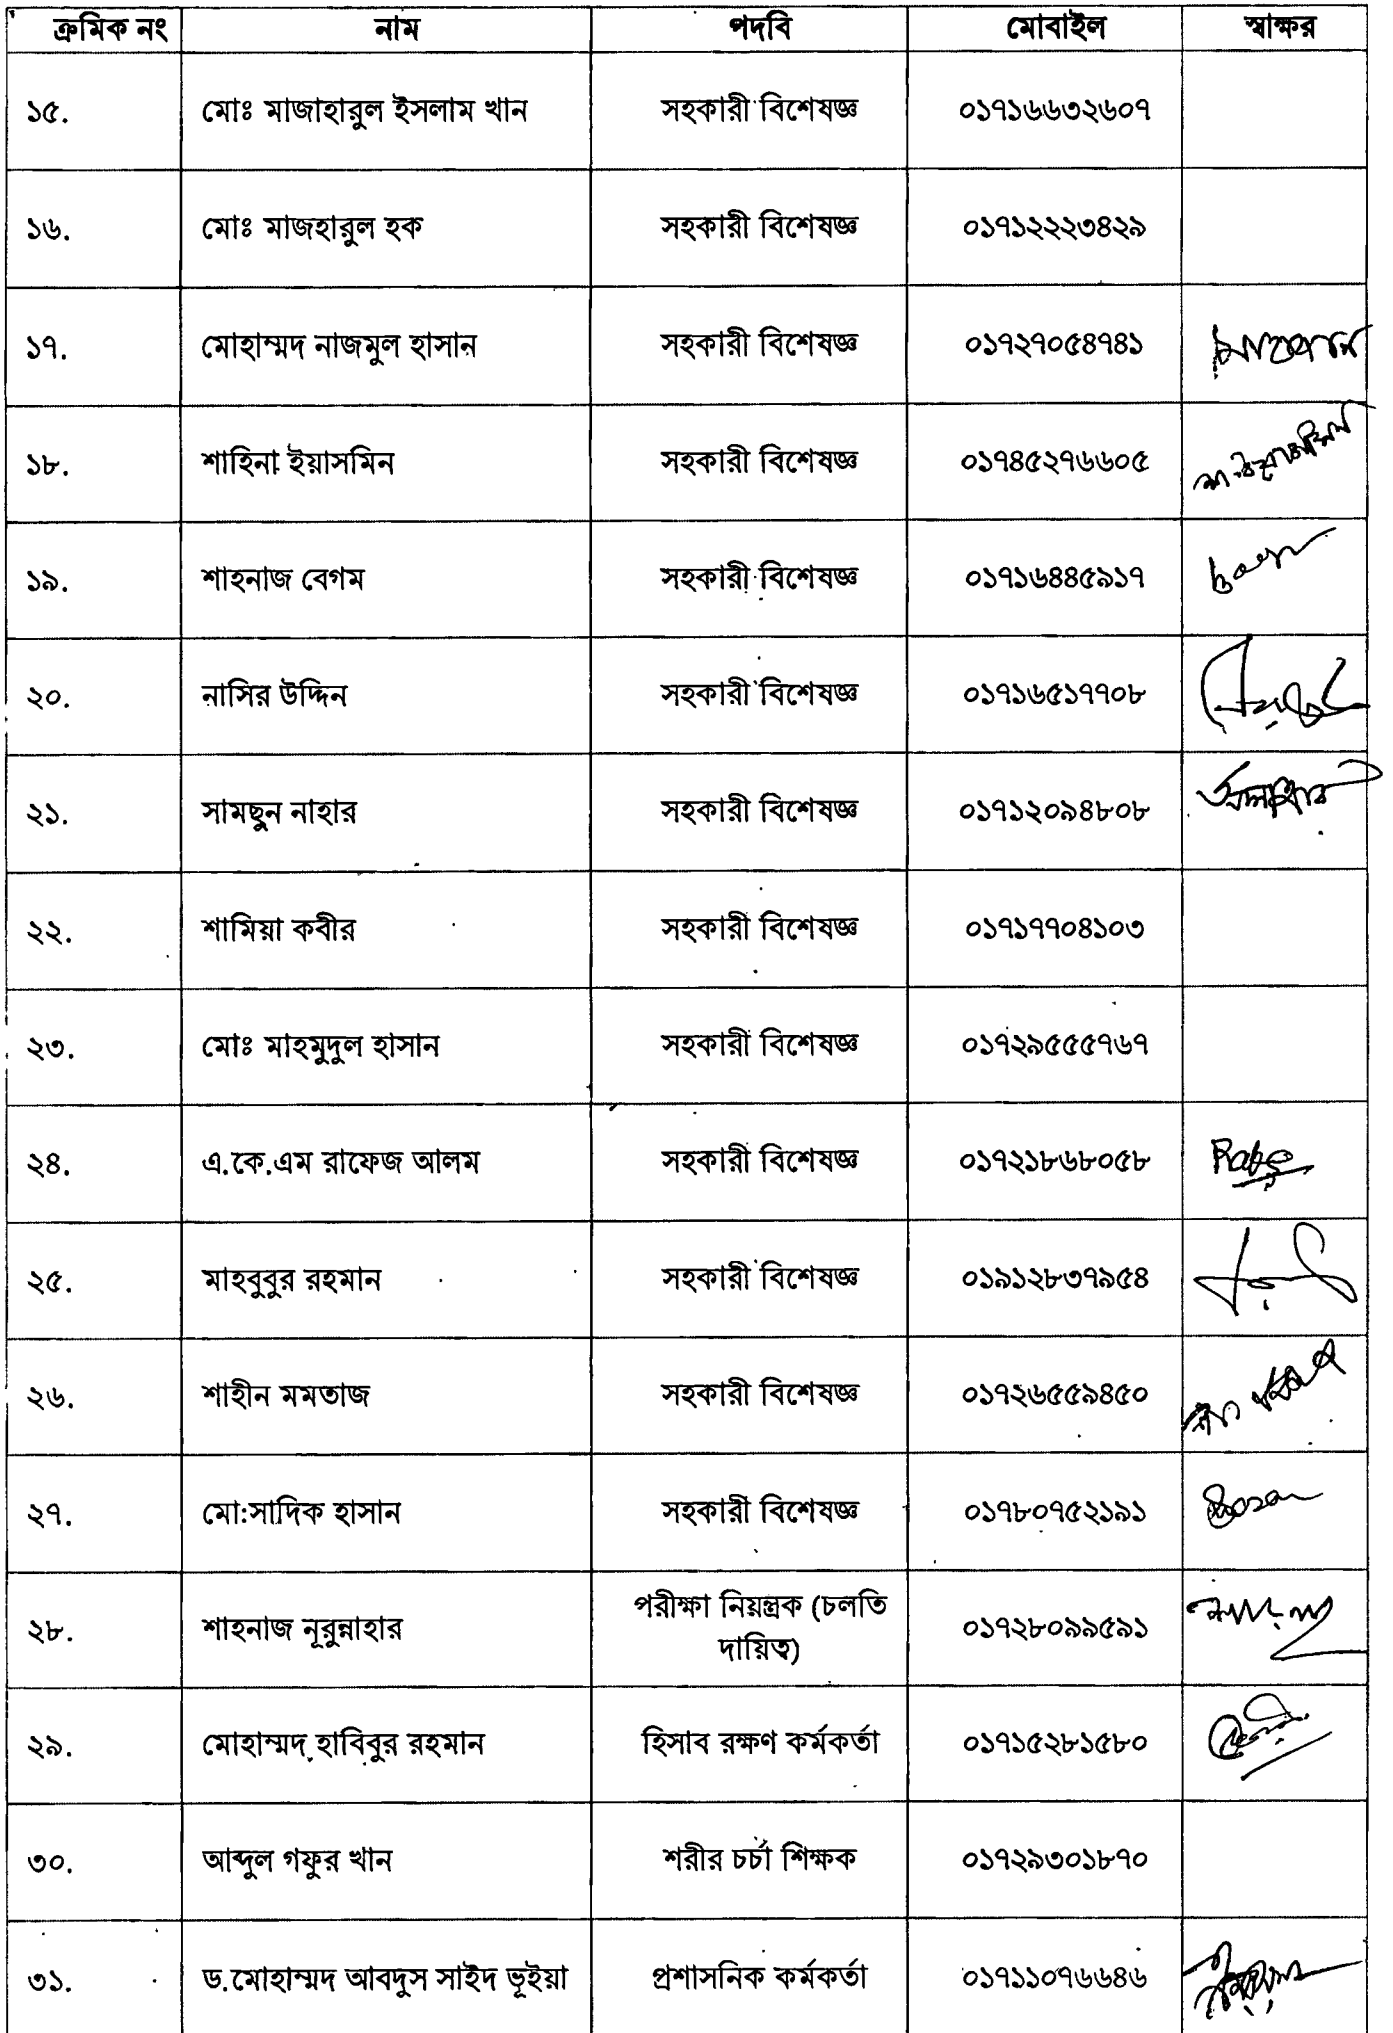 ক্রমিক নং নাম পদবি মোবাইল স্বাক্ষর
১৫. মোঃ মাজাহারুল ইসলাম খান সহকারী বিশেষজ্ঞ ০১৭১৬৬৩২৬০৭
১৬. মোঃ মাজহারুল হক সহকারী বিশেষজ্ঞ ০১৭১২২২৩৪২৯
১৭. মোহাম্মদ নাজমুল হাসান সহকারী বিশেষজ্ঞ ০১৭২৭০৫৪৭৪১
১৮. শাহিনা ইয়াসমিন সহকারী বিশেষজ্ঞ ০১৭৪৫২৭৬৬০৫
১৯. শাহনাজ বেগম সহকারী বিশেষজ্ঞ ০১৭১৬৪৪৫৯১৭
২০. নাসির উদ্দিন সহকারী বিশেষজ্ঞ ০১৭১৬৫১৭৭০৮
২১. সামছুন নাহার সহকারী বিশেষজ্ঞ ০১৭১২০৯৪৮০৮
২২. শামিয়া কবীর সহকারী বিশেষজ্ঞ ০১৭১৭৭০৪১০৩
২৩. মোঃ মাহমুদুল হাসান সহকারী বিশেষজ্ঞ ০১৭২৯৫৫৫৭৬৭
২৪. এ.কে.এম রাফেজ আলম সহকারী বিশেষজ্ঞ ০১৭২১৮৬৮০৫৮
২৫. মাহবুবুর রহমান সহকারী বিশেষজ্ঞ ০১৯১২৮৩৭৯৫৪
২৬. শাহীন মমতাজ সহকারী বিশেষজ্ঞ ০১৭২৬৫৫৯৪৫০
২৭. মো:সাদিক হাসান সহকারী বিশেষজ্ঞ ০১৭৮০৭৫২১৯১
২৮. শাহনাজ নূরুন্নাহার পরীক্ষা নিয়ন্ত্রক (চলতি ০১৭২৮০৯৯৫৯১
দায়িত্ব)
২৯. মোহাম্মদ হাবিবুর রহমান হিসাব রক্ষণ কর্মকর্তা ০১৭১৫২৮১৫৮০
৩০. আব্দুল গফুর খান শরীর চর্চা শিক্ষক ০১৭২৯৩০১৮৭০
৩১. ড.মোহাম্মদ আবদুস সাইদ ভূইয়া প্রশাসনিক কর্মকর্তা ০১৭১১০৭৬৬৪৬